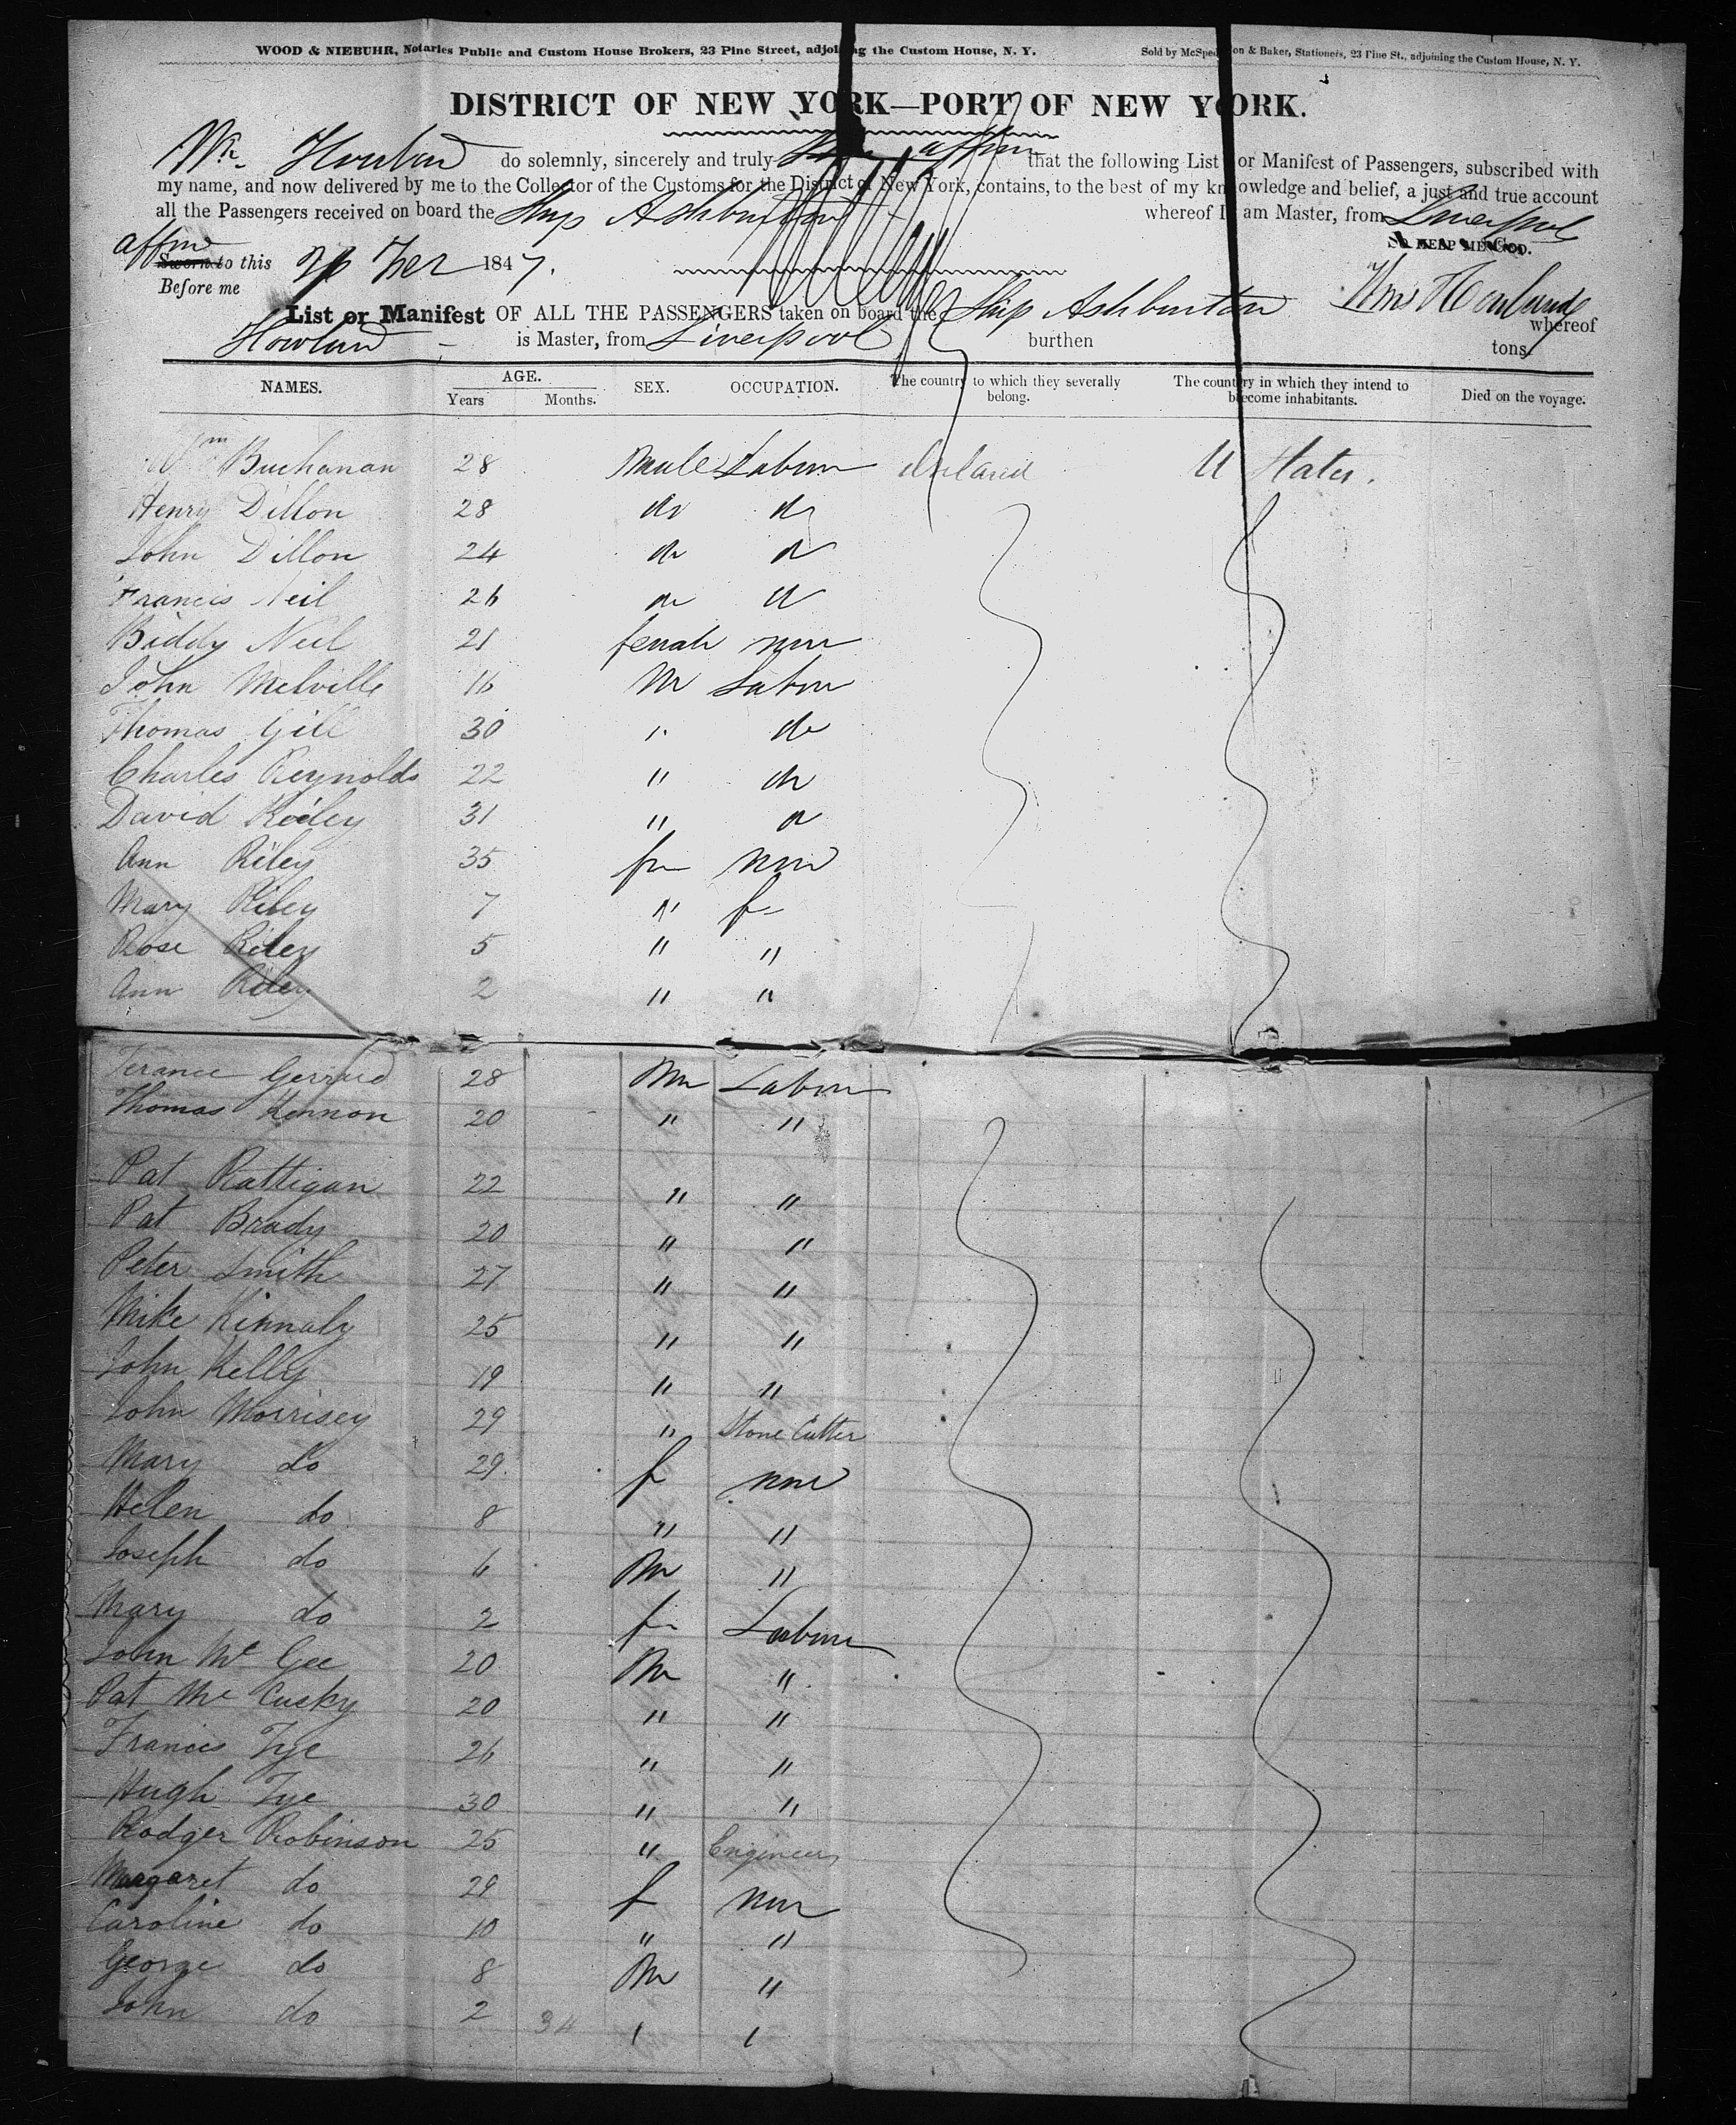 WOOD & NIEBUHR, Notaries Public and Custom House Brokers, 23 Pine Street, adjoining the Custom House, N. Y.
Sold by McSped on & Baker, Stationers, 23 Pine St., adjoining the Custom House, N. Y.
DISTRICT OF NEW YORK—PORT OF NEW YORK.
Wm Howland do solemnly, sincerely and truly affirm that the following List or Manifest of Passengers, subscribed with
my name, and now delivered by me to the Collector of the Customs for the District of New York, contains, to the best of my knowledge and belief, a just and true account
all the Passengers received on board the Ship Ashburton whereof I am Master, from Liverpool
SO HELP ME GOD.
affm
Sworn to this 1847.
Before me
Wm Howland
List or Manifest OF ALL THE PASSENGERS taken on board the Ship Ashburton whereof
Howland is Master, from Liverpool burthen tons.
NAMES. AGE. SEX. OCCUPATION. The country to which they severally belong. The country in which they intend to become inhabitants. Died on the voyage.
Years Months.
Wm Buchanan 28 Male Labour Ireland U States.
Henry Dillon 28 do do
John Dillon 24 do do
Francis Neil 26 do do
Biddy Neil 21 female none
John Melville 16 M Labour
Thomas Gill 30 " do
Charles Reynolds 22 " do
David Reiley 31 " do
Ann Riley 35 fm none
Mary Riley 7 "
Rose Riley 5 " "
Ann Riley 2 " "
Terance Gerraed 28 M Labour
Thomas Kennon 20 " "
Pat Rattigan 22 " "
Pat Brady 20 " "
Peter Smith 27 " "
Mike Kinnaly 25 " "
John Kelly 19 " "
John Morrisey 29 " Stone Cutter
Mary do 29 f none
Helen do 8 " "
Joseph do 6 M "
Mary do 2 f Labour
John Mc Gee 20 M "
Pat Mc Cusky 20 " "
Francis Tye 26 " "
Hugh Tye 30 " "
Rodger Robinson 25 " Engineer
Margaret do 29 f none
Caroline do 10 " "
George do 8 M "
John do 2 34